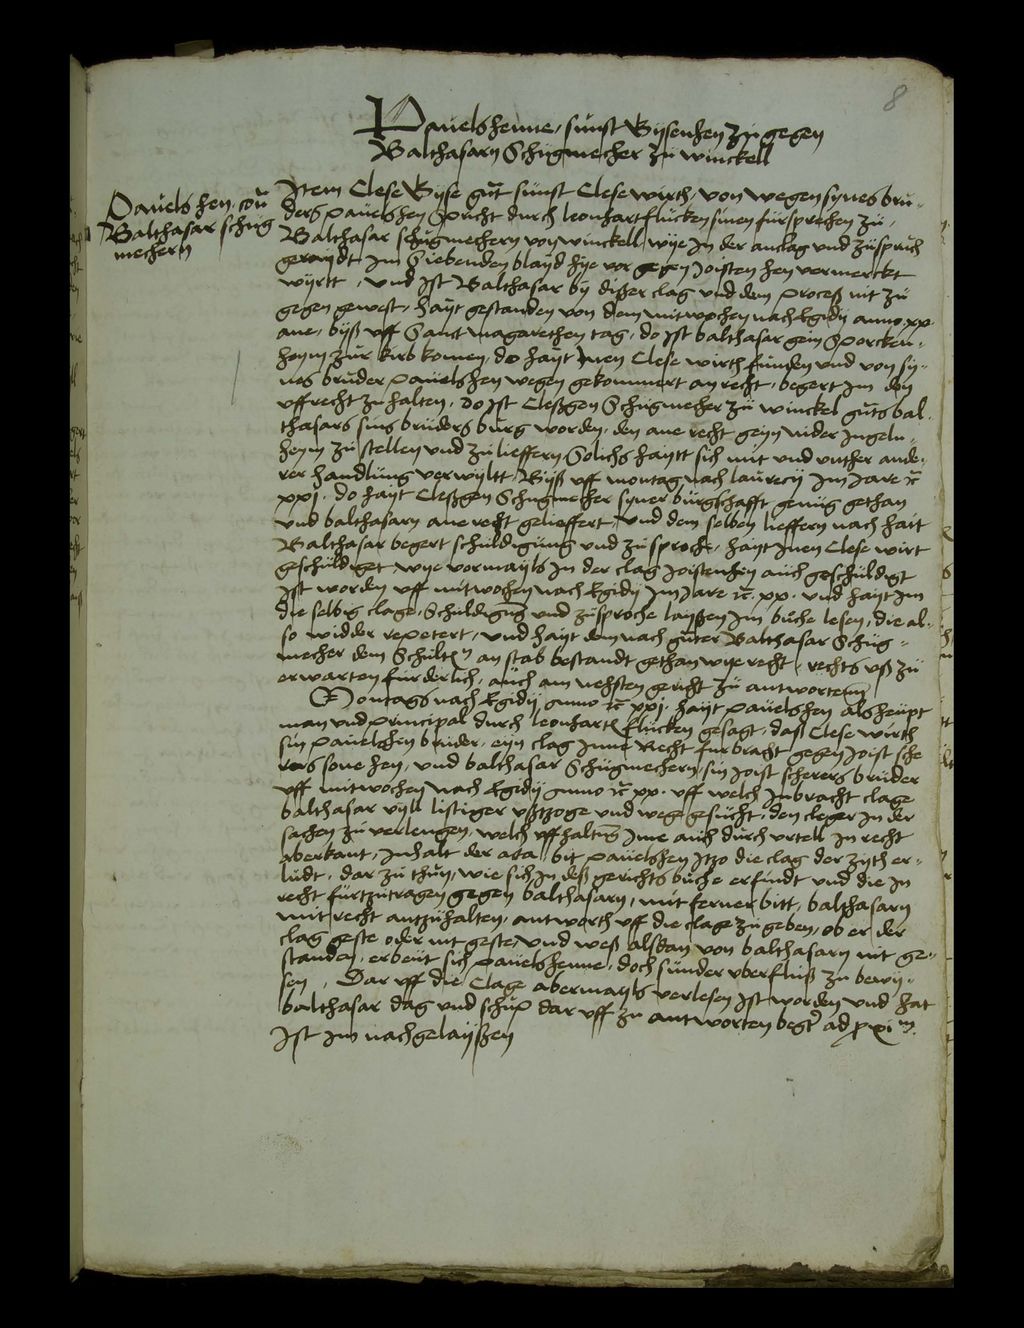 8
Pauelshenne, sunst Bysenhen zu gegen
Balthasarn Schugmecher zu winckell
Pauelshen, cou
Balthasar schug
mechern
Item Clese Byse gut sunst Clese wirth, von wegen synes bru-
ders pauelshen Spricht durch leonhart flucken sinen fursprechen zu,
Balthasar schugmechern von winckell, wye In der anclag und zuspruch
geroydt Im Siebenden blayd hye vor gegen Joisten hen vermerckt
wyrtt, und Ist Balthasar by dißer clag und dem Proceß nit zu
gegen gewest, hayt gestanden von dem mitwochen nach Egidij anno xx
ane, byß uff Sanct magarethen tag, do Ist balthasar gein Sporcken-
heym zur kirb komen, do hayt Inen Clese wirth funden und von sy-
nes bruder pauelshen wegen gekommert an recht, begert Im den
uff recht zu halten, do Ist Cleßgen Schugmecher zu winckel guts bal-
thasars sins bruders burg worden, den ane recht geyn nider Ingeln-
heym zu stellen und zu lieffern Solichs haytt sich mit und unther ande-
rer handlung verwyltt, Byß uff montag nach laurecij Im Jare rc
xxj. do hayt Cleßgen Schugmecher syner burgschafft genug gethan
und balthasarn ane recht gelieffert, und dem selben lieffern nach hait
Balthasar begert schuldigung und zusproche, hayt Inen Clese wirt
geschuldiget wye vormayls In der clag Joistenhen auch geschuldigt
Ist worden uff mitwochen nach Egidij Im Jare rc. xx. und hayt Im
die selbig clage, Schuldigung und zusproche layßen Im buche lesen, die al-
so widder repetert, und hayt dem nach guter Balthasar Schug-
mecher dem Schulteß an stab bestandt gethan wye recht, rechts uß zu
erwarten furderlich, auch am nehsten gericht zu antworten
Montags nach Egidij anno rc xxj. hayt pauelshen als heupt
man und principal durch leonhart flucken gesagt, daß Clese wirth
sin pauelshen bruder, eyn clag Inne Recht furbracht gegen Joist sche
rers sone hen, und balthasar Schugmechern, sin Joist scherers bruder
uff mitwochen nach Egidij anno rc xx. uff welch Inbracht clage
balthasar vyll listiger ußtzoge und wege gesucht, den cleger In der
sachen zu verlengen, welch uffhaltung Ime auch durch urtell In recht
aberkant, Inhalt der acta, bit pauelshen Itzo die clag der zyth er-
ludt, dar zu thun, wie sich In deß gerichts buche erfindt und die In
recht furtzutragen gegen balthasarn, mit ferner bitt, balthasarn
mit recht antzuhalten, antworth uff die clage zu geben, ob er der
clag geste oder nit geste, und weß alßdan von balthasarn nit ge-
standen, erbeut sich pauelshenne, doch sunder uberfluß zu bewy-
sen, Dar uff die Clage abermayls verlesen Ist worden und hat
balthasar dag und schup dar uff zu antworten begt ad pxim
Ist Im nachgelayßen